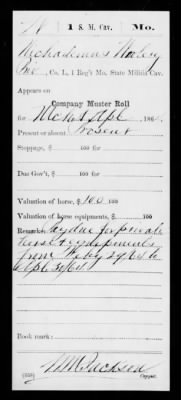 N | 1 S. M. Cav. | Mo.
Nichodemus
Pvt, Co. L, 1 Reg't Mo. State Militia Cav.
Appears on
Company Muster Roll
for Mch & Apl, 186
Present or absent Present
Stoppage, $ 100 for
Due Gov't, $ 100 for
Valuation of horse, $ 100 100
Valuation of horse equipments, $ 100
Remarks: Pay due for private
horse & equipments
from Feby 29/64 to
Apl 30/64
Book mark:
(858)
Jackson
Copyist.